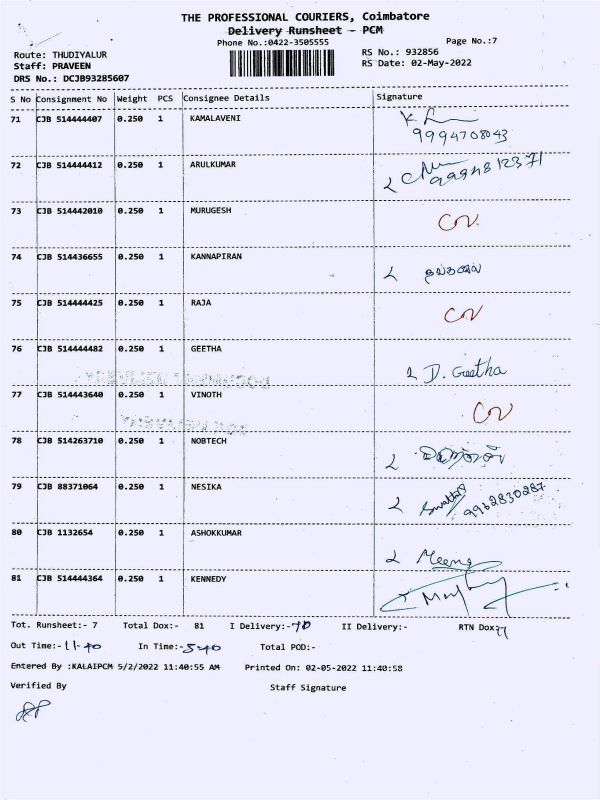 THE PROFESSIONAL COURIERS, Coimbatore
Delivery Runsheet - PCM
Phone No.:0422-3505555
Page No.:7
Route: THUDIYALUR
RS No.: 932856
Staff: PRAVEEN
RS Date: 02-May-2022
DRS No.: DCJB93285607
S No Consignment No Weight PCS Consignee Details Signature
71 CJB 514444407 0.250 1 KAMALAVENI
9994708043
72 CJB 514444412 0.250 1 ARULKUMAR
73 CJB 514442010 0.250 1 MURUGESH
74 CJB 514436655 0.250 1 KANNAPIRAN
75 CJB 514444425 0.250 1 RAJA
76 CJB 514444482 0.250 1 GEETHA
D. Geetha
77 CJB 514443640 0.250 1 VINOTH
78 CJB 514263710 0.250 1 NOBTECH
79 CJB 88371064 0.250 1 NESIKA
9962830287
80 CJB 1132654 0.250 1 ASHOKKUMAR
Meena
81 CJB 514444364 0.250 1 KENNEDY
Tot. Runsheet:- 7 Total Dox:- 81 I Delivery:-70 II Delivery:- RTN Dox:-
Out Time:-11-40 In Time:-5-40 Total POD:-
Entered By :KALAIPCM 5/2/2022 11:40:55 AM Printed On: 02-05-2022 11:40:58
Verified By Staff Signature